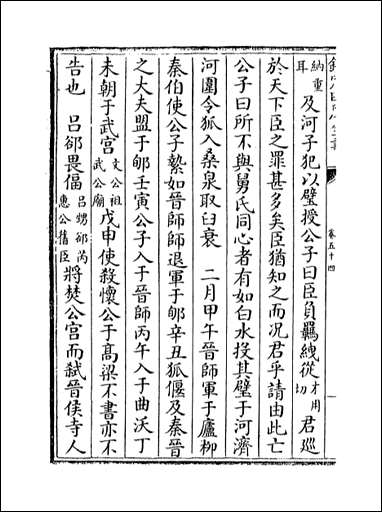 卷五十四
納重耳及河子犯以璧授公子曰臣負羈絏從才用切君巡
於天下臣之罪甚多矣臣猶知之而况君乎請由此亡
公子曰所不與舅氏同心者有如白水投其璧于河濟
河圍令狐入桑泉取臼衰　二月甲午晉師軍于廬柳
秦伯使公子縶如晉師師退軍于郇辛丑狐偃及秦晉
之大夫盟于郇壬寅公子入于晉師丙午入于曲沃丁
未朝于武宮文公祖武公廟戊申使殺懷公于髙梁不書亦不
告也　呂郤畏偪呂甥郤芮惠公舊臣將焚公宮而弑晉侯寺人